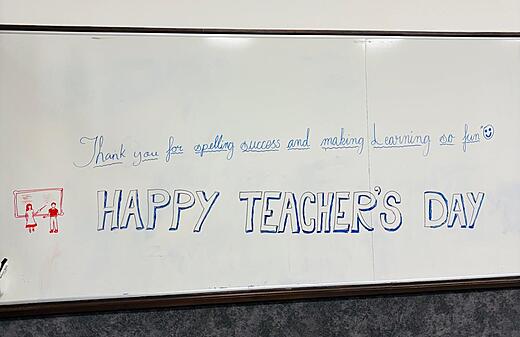 Thank you for spelling success and making Learning so fun
HAPPY TEACHER'S DAY